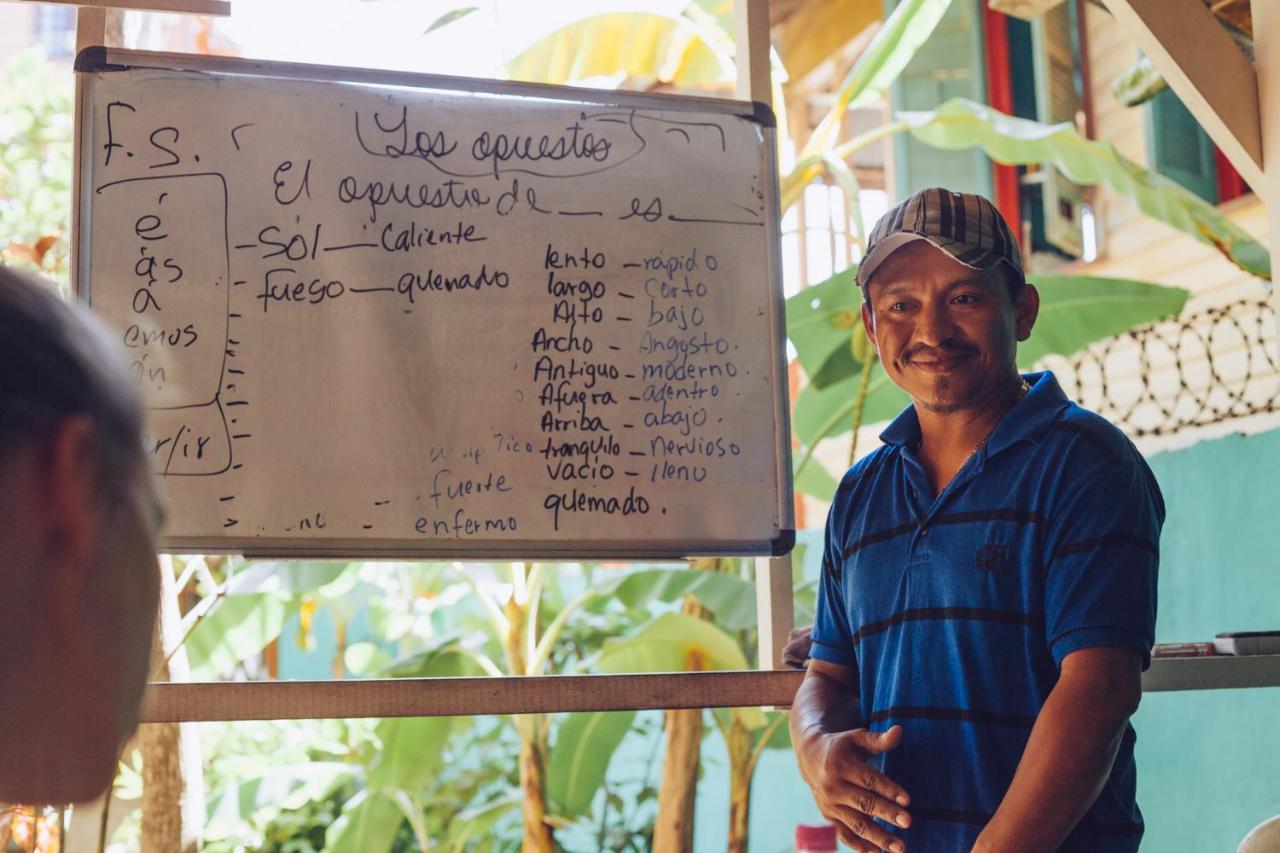 F.S.
Los opuestos
El opuesto de __ es.____
é
ás
á
emos
án
r/ir
- Sol — Caliente
- fuego — quemado
lento - rápido
largo - corto
Alto - bajo
Ancho - Angosto.
Antiguo - moderno.
Afuera - adentro.
Arriba - abajo.
tranquilo - nervioso
vacío - lleno
quemado.
fuerte
enfermo